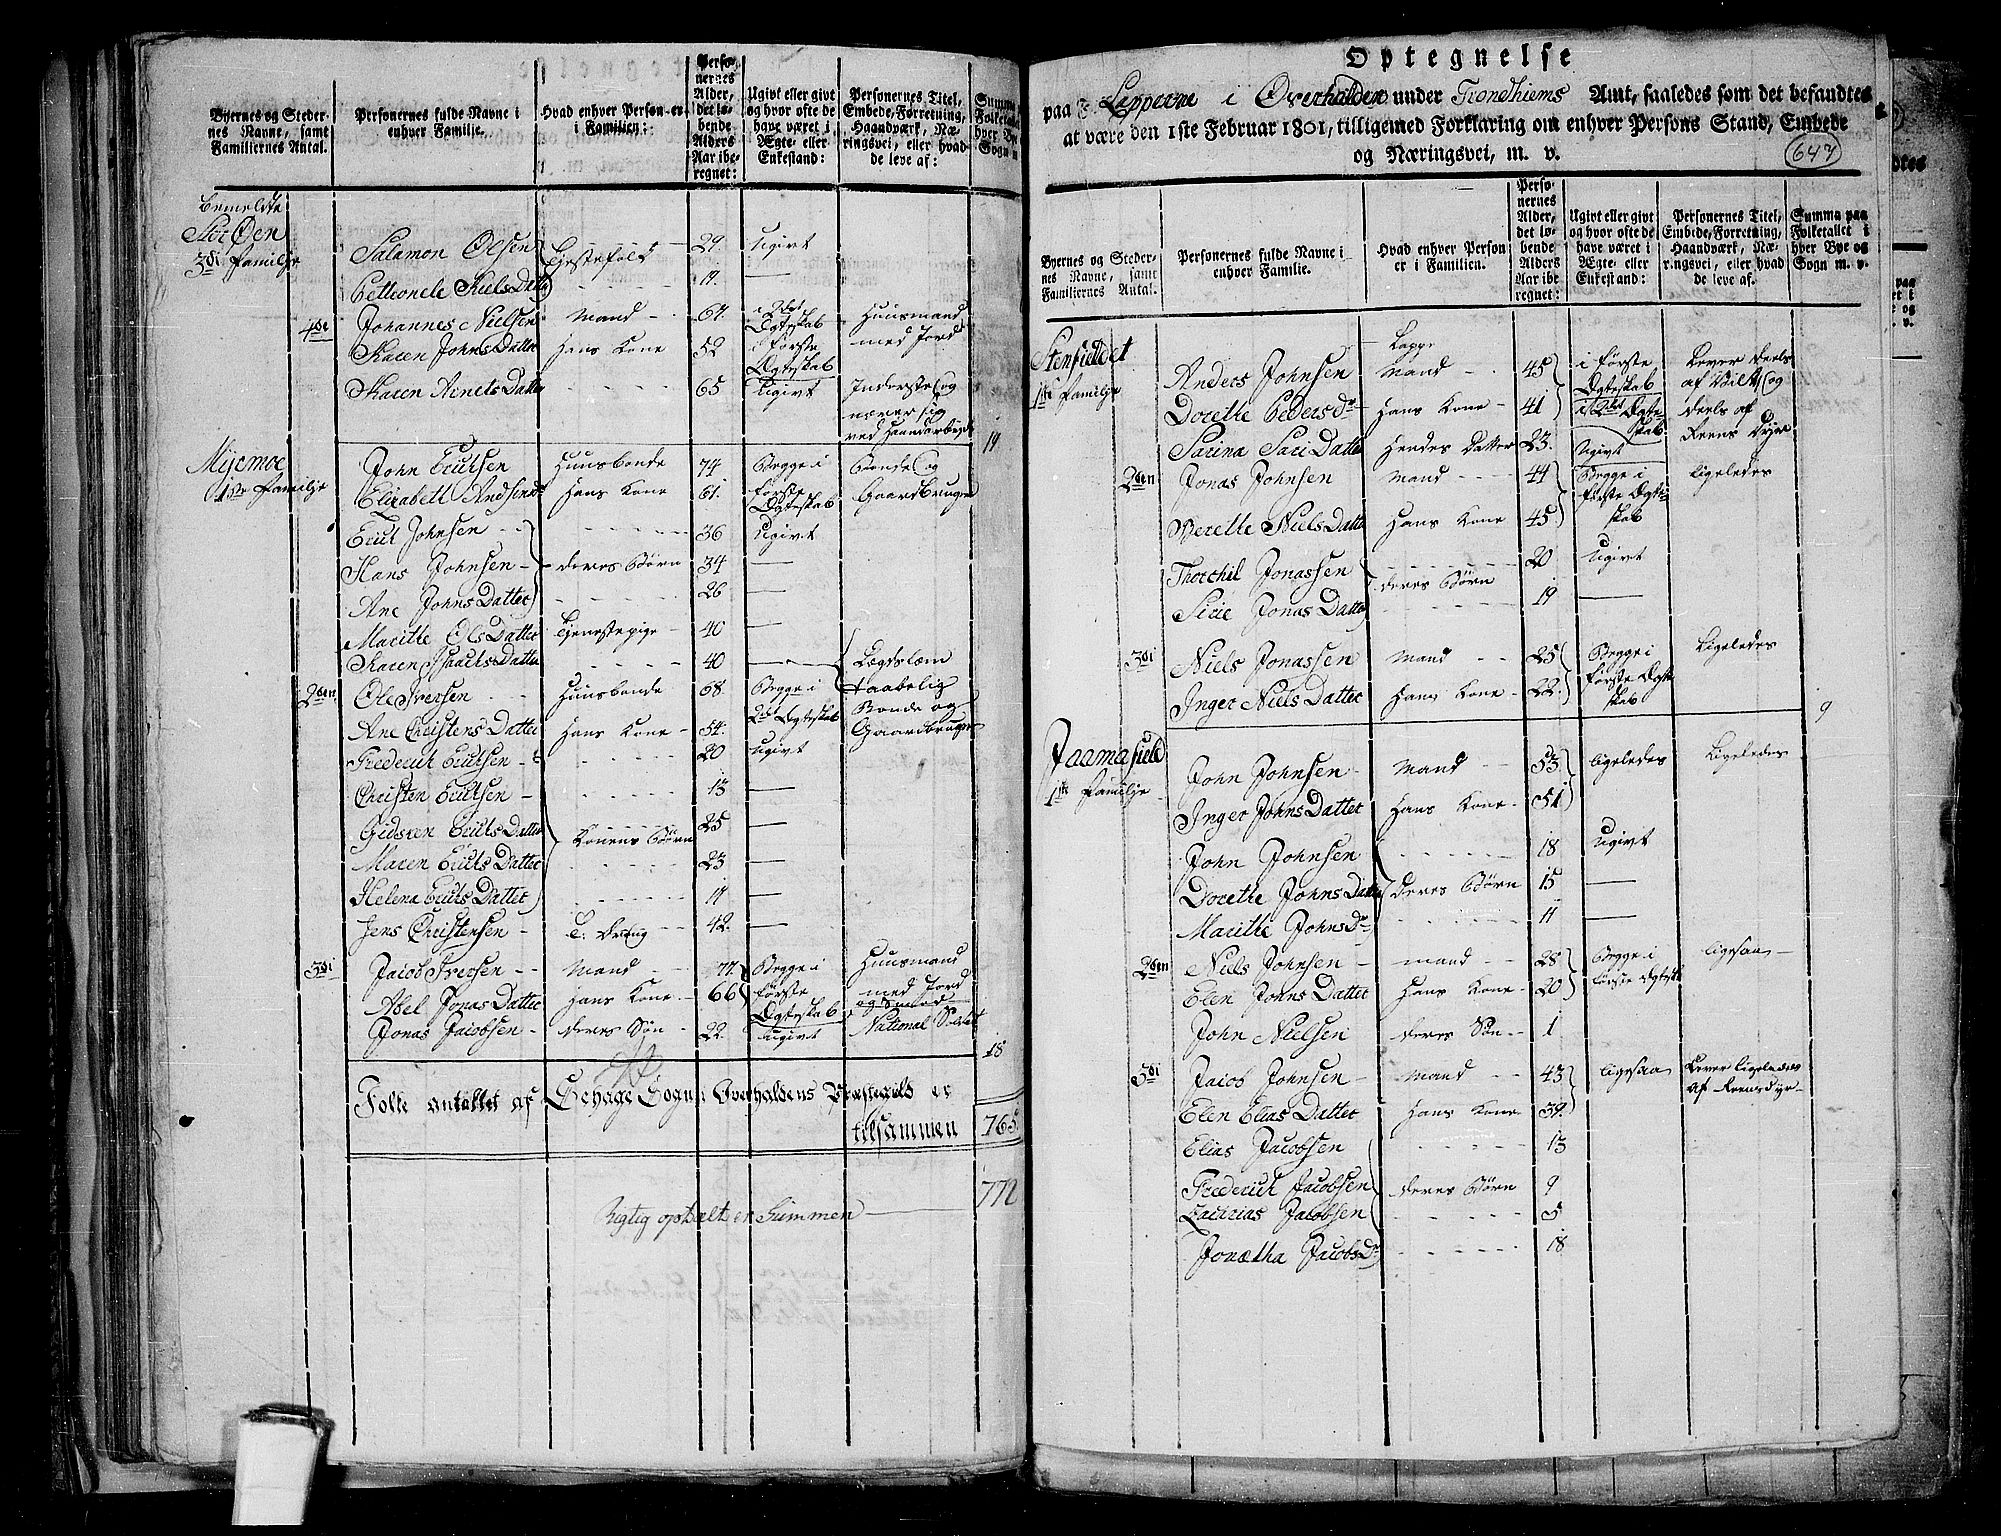 Byernes og Stedernes Navne, samt Familiernes Antal.
Personernes fulde Navne i enhver Familie.
Hvad enhver Person er i Familien:
Personernes Alder, det løbende Alders Aar iberegnet:
Ugivt eller givt og hvor ofte de have været i Ægte- eller Enkestand:
Personernes Titel, Embede, Forretning, Haandværk, Næringsvei, eller hvad de leve af:
bemeldte
Stor Øen
3di Familje
Salamon Olsen Tjenestefolk 29. ugivt
Petronele Niels Datter 19. —
4de Johannes Nielsen Mand 67. i 2det Ægteskab Huusmand med Jord
Karen Johns Datter Hans Kone 52 i første Ægteskab
Karen Arnets Datter 65 Ugivt Inderste og nærer sig ved Haandarbejde
19
Myremoe
1ste Familje
John Erichsen Huusbonde 74 Begge i første Ægteskab Bonde og Gaardbruger
Elizabeth Hans Kone 61.
Erich Johnsen 36 Ugivt
Hans Johnsen deres Børn 34 —
Ane Johns Datter 26 —
Marithe Ols Datter Tjenestepige 40 —
Karen Isaachs Datter 40 — Lægdslem taabelig
2den Ole Iversen Huusbonde 68. Begge i 2det Ægteskab Bonde og Gaardbruger
Ane Christens Datter Hans Kone 54.
Frederich Erichsen 20 ugivt
Christen Erichsen 13 —
Gidsken Erichs Datter Konens Børn 25 —
Maren Erichs Datter 23 —
Helena Erichs Datter 11 —
Jens Christensen T: Dreng 42. —
3di Jacob Iversen Mand 77. Begge i første Ægteskab Huusmand med Jord og Smed
Abel Jonas Datter Hans Kone 66
Jonas Jacobsen deres Søn 22. ugivt National Soldat
18
Folke antallet af Gehage Sogn i Overhaldens Præstegield er
tilsammen 765
772
Rigtig optælt er Summen
Optegnelse
paa Lapperne i Overhalden under Trondhiems Amt, saaledes som det befandtes
at være den 1ste Februar 1801, tilligemed Forklaring om enhver Persons Stand, Embede
og Næringsvei, m. v.
647
Byernes og Stedernes Navne, samt Familiernes Antal.
Personernes fulde Navne i enhver Familie.
Hvad enhver Person er i Familien.
Personernes Alder, det løbende Alders Aar iberegnet:
Ugivt eller givt og hvor ofte de have været i Ægte- eller Enkestand:
Personernes Titel, Embede, Forretning, Haandværk, Næringsvei, eller hvad de leve af.
Summa paa Folketallet i hver Bye og Sogn m. v.
Stenfieldet
1ste Familje
Lappe
Anders Johnsen Mand 45 i første Ægteskab Lever deels af Vildt og deels af Reens Dyr
Dorethe Peders Dr Hans Kone 41 i 2det Ægteskab
Sarina Sari Datter Hendes Datter 23. Ugivt
2den Jonas Johnsen Mand 44 Begge i første Ægteskab ligeledes
Berethe Niels Datter Hans Kone 45
Thorchil Jonassen deres Børn 20 ugivt
Sirie Jonas Datter 19 —
3di Niels Jonassen Mand 25 Begge i første Ægteskab Ligeledes
Inger Niels Datter Hans Kone 22.
9
Jaamafield
1ste Familje
John Johnsen Mand 53 ligeledes Ligeledes
Inger Johns Datter Hans Kone 51
John Johnsen 18 ugivt
Dorethe Johns Datter deres Børn 15 —
Marithe Johns Dr 11 —
2den Niels Johnsen Mand 28 Begge i første Ægtesk ligesaa
Elen Johns Datter Hans Kone 20
John Nielsen deres Søn 1
3di Jacob Johnsen Mand 43 ligesaa Lever ligeledes af Reensdyr
Elen Elias Datter Hans Kone 39.
Elias Jacobsen 13
Frederich Jacobsen deres Børn 9
Zachrias Jacobsen 5
Jonetha Jacobs Dr 18